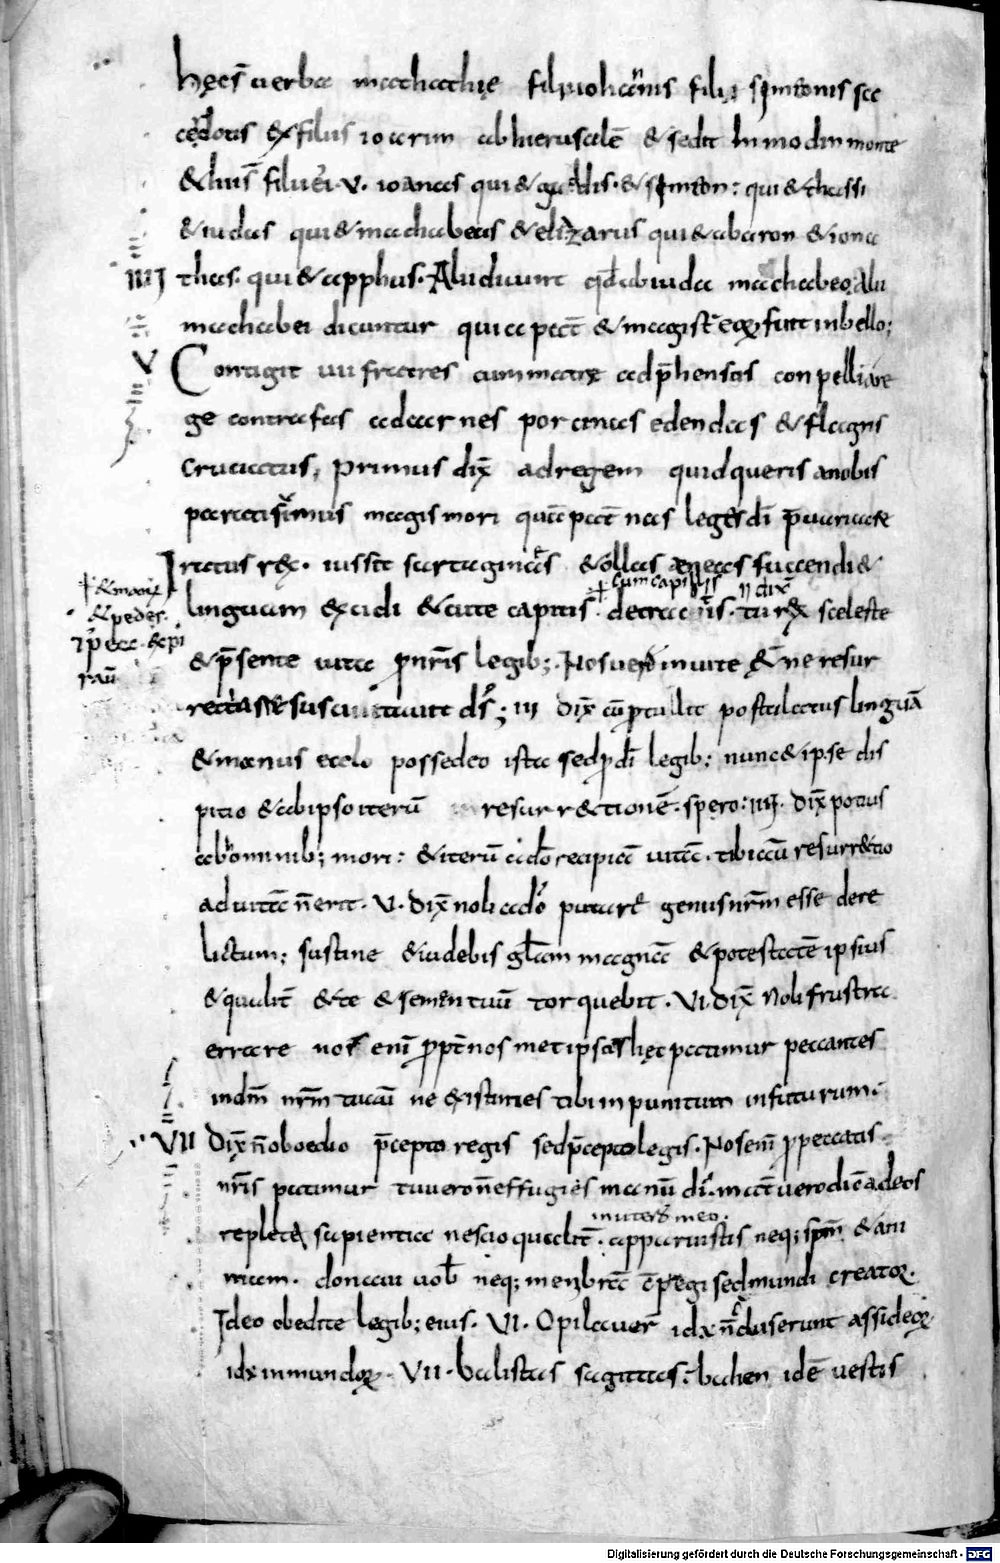 hęc s̄ uerba mathathię filii iohannis filii simeonis sa
cerdotis & filius ioarim ab hierusalē & sedit in modin monte
& huic filii er̄ .V. ioannas qui & gaddis . & simeon : qui & thassi
& iudas qui & machabeus & eliazarus qui & abaron & iona
IIII thas . qui & apphus . Alii diuunt qđ ab iuda machabeo alii
machabei dicuntur quia pat̄ & magist̄ eoꝝ fuit in bello ;
V Contigit uii fratres cum matre adp̄hensos conpelli a re
ge contra fas ad carnes porcinas edendas & flagris
cruciatus , primus dix̄ ad regem quid queris a nobis
parati sumus magis mori quā pat̄nas leges dī p̄uaricare
Iratus r&x . iussit sartagines & ollas ęneas succendi &
cum capillis II dix̄
+ & manū linguam excidi & cute capitis . detrac is . tu rex sceleste
& pedes .
& p̄sente uita p nr̄is legib; . Nos uero inuitē & ne resur
rectione suscitauit ds̄ ; III dix̄ cū p tullit postulatus linguā
& manus e celo possedeo ista sed p dī legib; nunc & ipse dis
picio & ab ipso iterū resurr&ctionē . spero : IIII . dix̄ potius
ab omnib; mori : & iterū a dō recipiā uitā . tibi aū resurrectio
ad uitā n̄ erit . V . dix̄ noli a dō putare genus nr̄m esse dere
lictum ; sustine & uidebis glām magnā & potestatē ipsius
& qualit̄ & te & semen tuū torquebit . VI . dix̄ Noli frustra
errare nos enī ppt̄ nos met ipsos hęc patimur peccantes
in dm̄ nr̄m tu aū ne existimes tibi inpunitum infuturum .
VII Dix̄ n̄ oboedio p̄cepto regis sed p̄cepto legis . Nos em̄ p peccatis
nr̄is patimur tu uero n̄ effugies manū dī . mat̄ uero dic̄ ad eos
in utero meo .
repleta sapientia nescio qualit̄ . apparuistis neq; spm̄ & ani
mam . donaui uob̄ neq; menbra c̄pegi sed mundi creator .
Ideo obedite legib; eius . VI . Opilauer̄ idx̄ n̄ duserunt assideoꝝ
idx̄ inmundoꝝ . VII . balistas sagittas . bahen idē uestis
Digitalisierung gefördert durch die Deutsche Forschungsgemeinschaft - DFG